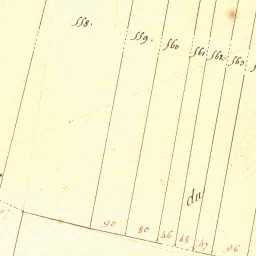 558. 559. 560 561 562 563
da
90 80 46 48 47 96